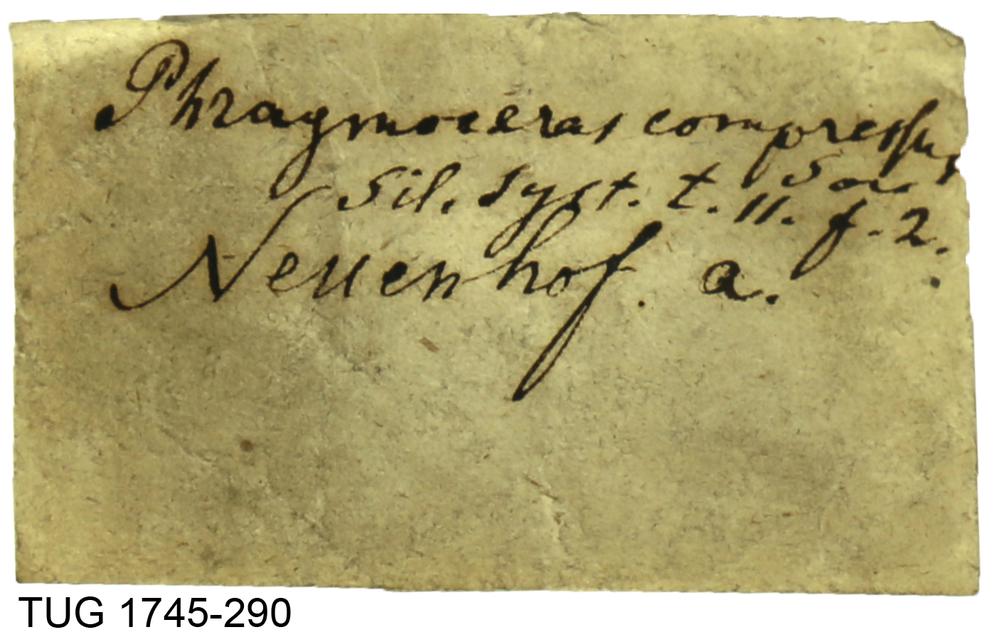 Phragmoceras compressus
Sow
Sil. Syst. t. 11. f. 2.
Neuenhof. a.
TUG 1745-290